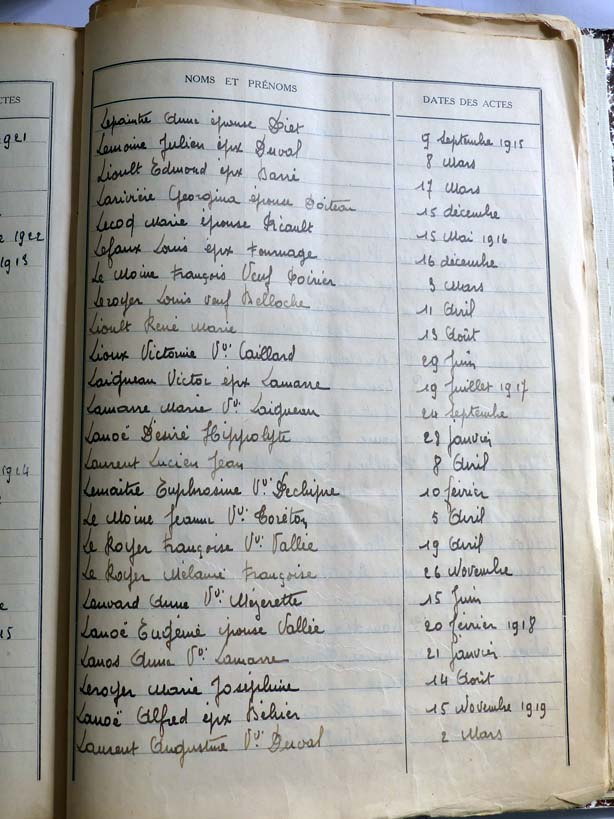 CTES
1921
1922
1913
1914
15
NOMS ET PRÉNOMS DATES DES ACTES
Lepaintre Anne épouse Diet 9 Septembre 1915
Lemoine Julien épx Duval 8 Mars
Lioult Edmond épx Barré 17 Mars
Larivière Georgina épouse Boiteau 15 décembre
Lecoq Marie épouse Ricault 15 Mai 1916
Lefaux Louis épx Fournage 16 décembre
Le Moine François Veuf Poirier 3 Mars
Leroyer Louis veuf Belloche 11 Avril
Lioult René Marie 13 Août
Lioux Victorine Vve Caillard 29 Juin
Laigneau Victor épx Lamarre 19 Juillet 1917
Lamarre Marie Vve Laigneau 24 Septembre
Lanoë Désiré Hippolyte 28 janvier
Laurent Lucien Jean 8 Avril
Lemaitre Euphrasine Vve Dechipre 10 février
Le Moine Jeanne Vve Coréton 5 Avril
Le Royer Françoise Vve Vallée 19 Avril
Le Royer Mélanie Françoise 26 Novembre
Lauvard Anne Vve Mézerette 15 Juin
Lanoë Eugénie épouse Vallée 20 février 1918
Lanos Anne Vve Lamarre 21 janvier
Leroyer Marie Joséphine 14 Août
Lanoë Alfred épx Béhier 15 Novembre 1919
Laurent Augustine Vve Duval 2 Mars